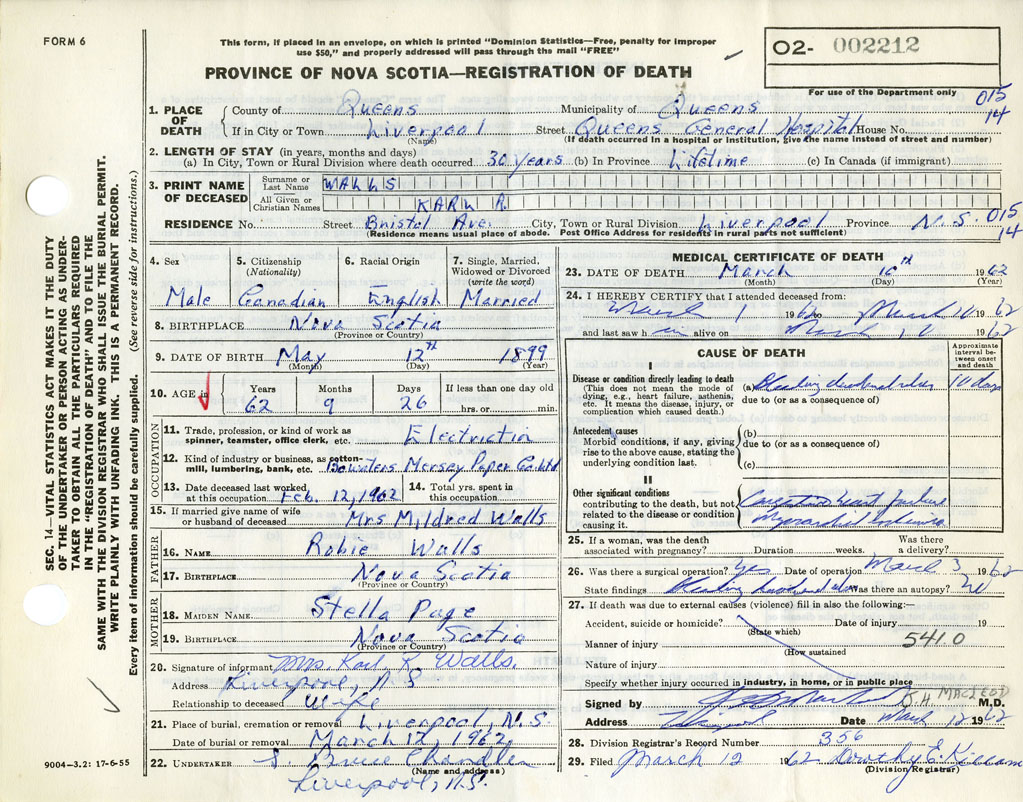 FORM 6
This form, if placed in an envelope, on which is printed "Dominion Statistics—Free, penalty for improper
use $50," and properly addressed will pass through the mail "FREE"
O2- 002212
PROVINCE OF NOVA SCOTIA—REGISTRATION OF DEATH
For use of the Department only
015
14
1. PLACE OF DEATH
County of Queens Municipality of Queens
If in City or Town Liverpool Street Queens General Hospital House No.
(Name) (If death occurred in a hospital or institution, give the name instead of street and number)
2. LENGTH OF STAY (in years, months and days)
(a) In City, Town or Rural Division where death occurred 30 years (b) In Province Lifetime (c) In Canada (if immigrant)
3. PRINT NAME OF DECEASED
Surname or Last Name WALLS
All Given or Christian Names KARL R.
RESIDENCE No. Street Bristol Ave. City, Town or Rural Division Liverpool Province N.S. 015
14
(Residence means usual place of abode. Post Office Address for residents in rural parts not sufficient)
4. Sex
Male
5. Citizenship
(Nationality)
Canadian
6. Racial Origin
English
7. Single, Married, Widowed or Divorced
(write the word)
Married
8. BIRTHPLACE Nova Scotia
(Province or Country)
9. DATE OF BIRTH May 12th 1899
(Month) (Year)
10. AGE in
Years Months Days If less than one day old
62 9 26 hrs. or min.
OCCUPATION
11. Trade, profession, or kind of work as
spinner, teamster, office clerk, etc. Electrician
12. Kind of industry or business, as cotton-
mill, lumbering, bank, etc. Bowaters Mersey Paper Co. Ltd
13. Date deceased last worked
at this occupation Feb. 12, 1962
14. Total yrs. spent in
this occupation
15. If married give name of wife
or husband of deceased Mrs Mildred Walls
FATHER
16. NAME Robie Walls
17. BIRTHPLACE Nova Scotia
(Province or Country)
MOTHER
18. MAIDEN NAME Stella Page
19. BIRTHPLACE Nova Scotia
(Province or Country)
20. Signature of informant Mrs. Karl R. Walls.
Address Liverpool, N.S
Relationship to deceased Wife
21. Place of burial, cremation or removal Liverpool, N.S.
Date of burial or removal March 12, 1962
22. UNDERTAKER S. Bruce Chandler
(Name and address)
Liverpool, N.S.
MEDICAL CERTIFICATE OF DEATH
23. DATE OF DEATH March 10th 1962
(Month) (Day) (Year)
24. I HEREBY CERTIFY that I attended deceased from:
March 1 1962 to March 10 1962
and last saw h im alive on March 10 1962
CAUSE OF DEATH
Approximate interval between onset and death
I
Disease or condition directly leading to death
(This does not mean the mode of
dying, e.g., heart failure, asthenia,
etc. It means the disease, injury, or
complication which caused death.)
(a) Bleeding duodenal ulcer 10 days
due to (or as a consequence of)
Antecedent causes
Morbid conditions, if any, giving
rise to the above cause, stating the
underlying condition last.
(b)
due to (or as a consequence of)
(c)
II
Other significant conditions
contributing to the death, but not
related to the disease or condition
causing it.
Congestive heart failure
Myocardial
25. If a woman, was the death
associated with pregnancy? Duration weeks. Was there
a delivery?
26. Was there a surgical operation? Yes Date of operation March 3 1962
State findings Bleeding duodenal ulcer Was there an autopsy? No
27. If death was due to external causes (violence) fill in also the following:—
Accident, suicide or homicide? Date of injury 19
(State which)
Manner of injury 541.0
(How sustained
Nature of injury
Specify whether injury occurred in industry, in home, or in public place
Signed by J.H. MACLEOD M.D.
Address Liverpool Date March 12 1962
28. Division Registrar's Record Number 356
29. Filed March 12 1962 Dorothy E. Killam
(Division Registrar)
SEC. 14—VITAL STATISTICS ACT MAKES IT THE DUTY
OF THE UNDERTAKER OR PERSON ACTING AS UNDER-
TAKER TO OBTAIN ALL THE PARTICULARS REQUIRED
IN THE "REGISTRATION OF DEATH" AND TO FILE THE
SAME WITH THE DIVISION REGISTRAR WHO SHALL ISSUE THE BURIAL PERMIT.
WRITE PLAINLY WITH UNFADING INK. THIS IS A PERMANENT RECORD.
Every item of information should be carefully supplied. (See reverse side for instructions.)
9004—3.2: 17-6-55